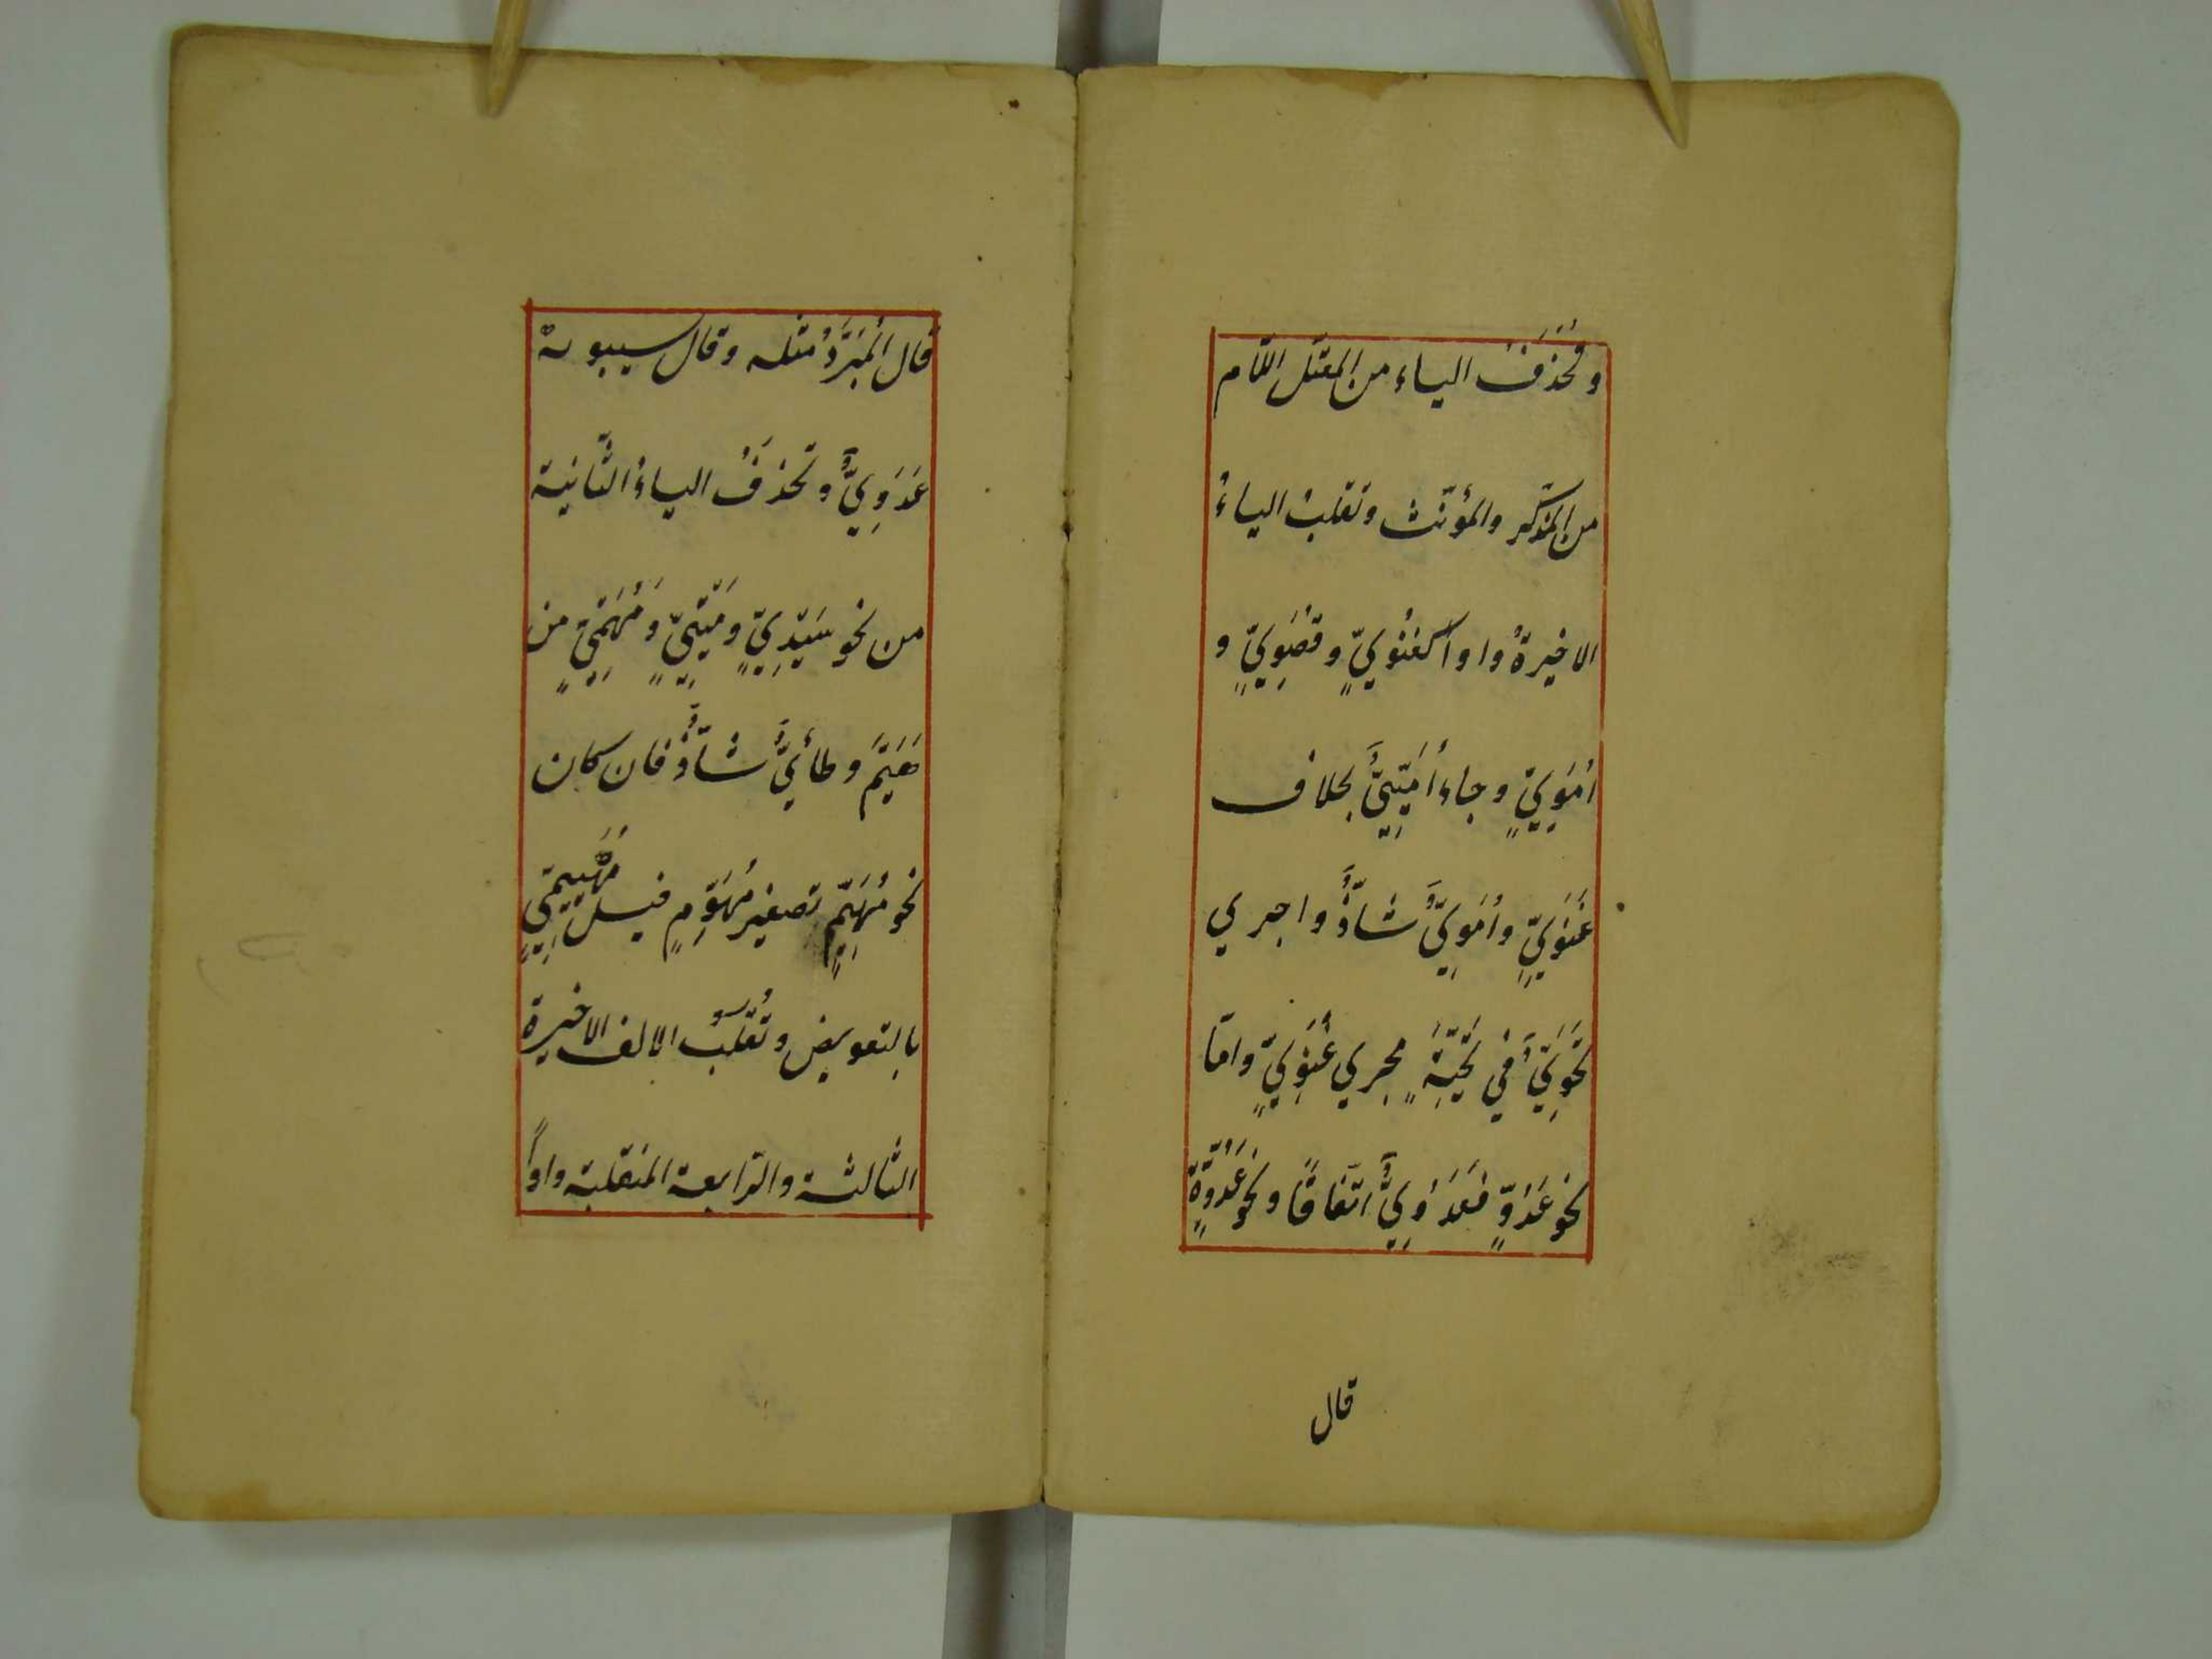 وتُحْذَفُ الياء من المعتل اللام
من المذكّر والمؤنّث وتقلبُ الياءُ
الاخيرةُ واواً كغَنَوِيٍّ وقصَوِيٍّ و
اُمَوِيٍّ وجاءَ اُمَيِّيٌّ بخلاف
غَنَوِيٍّ واُمَوِيٌّ شاذٌّ واجري
تَحَوِيٌّ في تَحِيَّةٍ مجري غَنَوِيٍّ وامّا
نحو عَدُوٍّ فعَدُوِّيٌّ اتّفاقًا ونحو عَدُوَّةٍ
قال
قال المُبَرَّدُ مثله وقال سيبويه
عَدَوِيٌّ وتحذفُ الياءُ الثّانية
من نحو سَيِّدِيٍّ ومَيِّتِيٍّ وَمُهَيِّمِيٍّ من
هَيَّمَ وَطائيٌّ شاذٌّ فان كان
نحو مُهَيِّمٍ تصغير مُهَوِّمٍ قيل مُهَيِّيمِيٍّ
بالتعويض وتُقْلَبُ الالف الاخيرة
الثالثة والرّابعة المنقلبة واواً